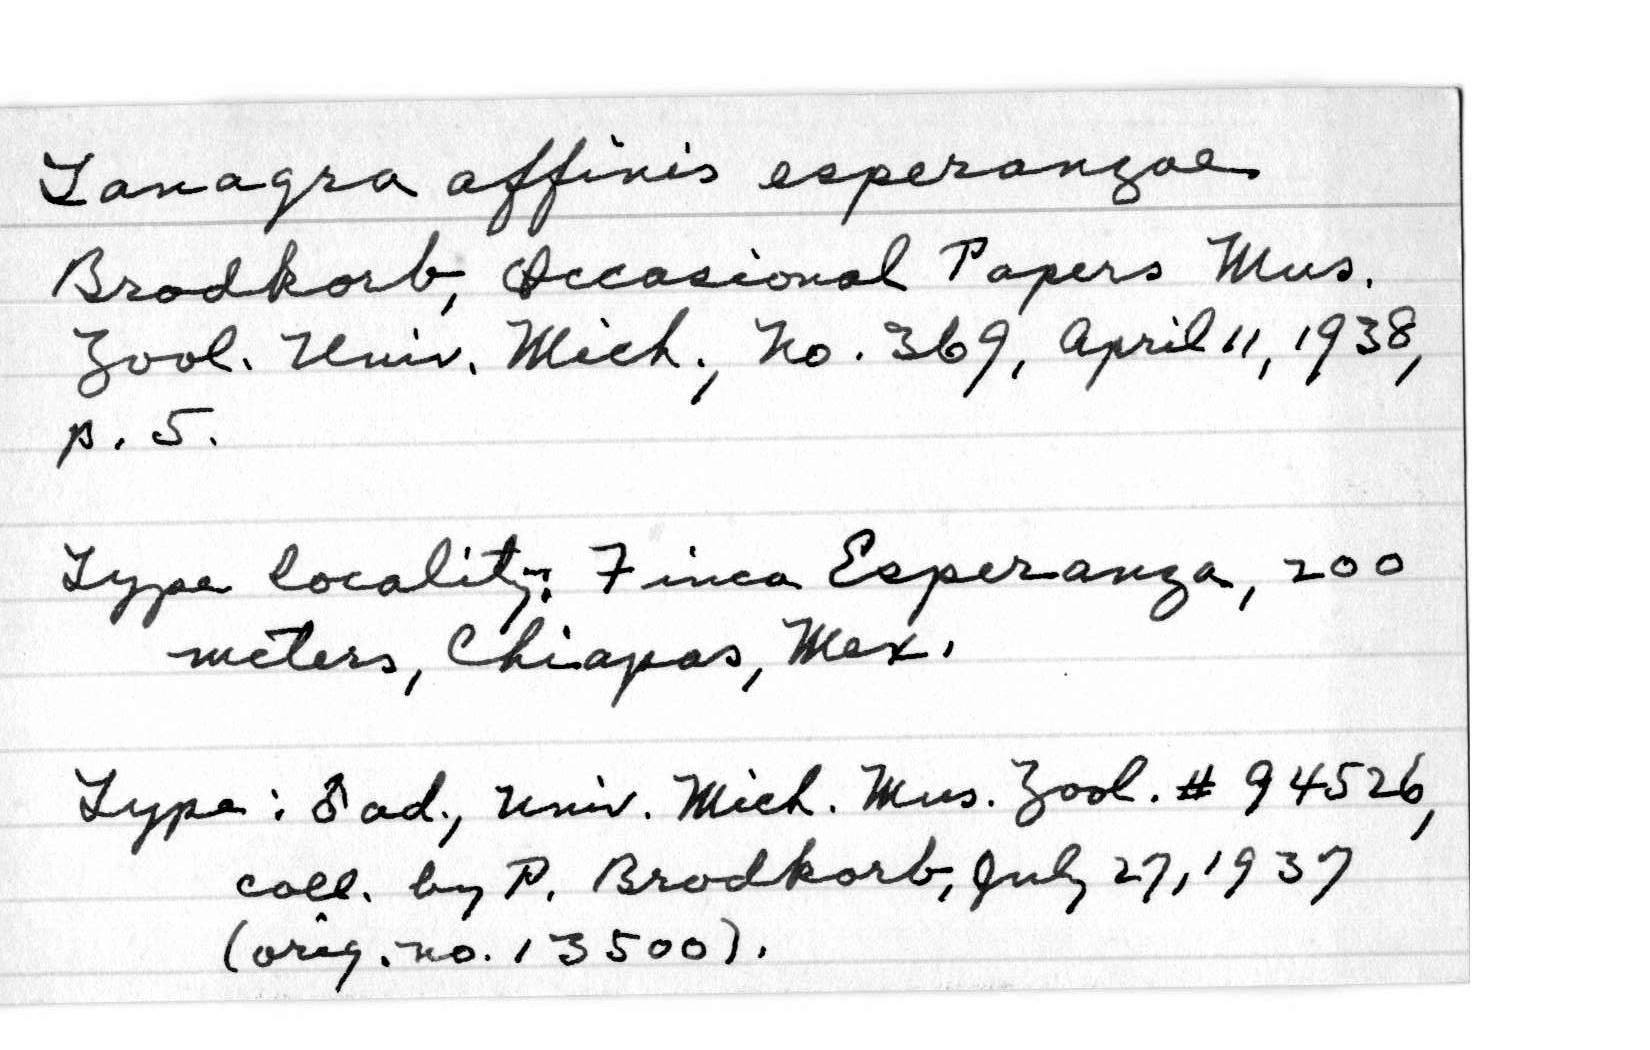 Tanagra affinis esperanzae
Brodkorb, Occasional Papers Mus.
Zool. Univ. Mich., No. 369, April 11, 1938,
p. 5.
Type locality: Finca Esperanza, 200
meters, Chiapas, Mex.
Type: ♂ ad., Univ. Mich. Mus. Zool. # 94526,
coll. by P. Brodkorb, July 27, 1937
(orig. no. 13500).